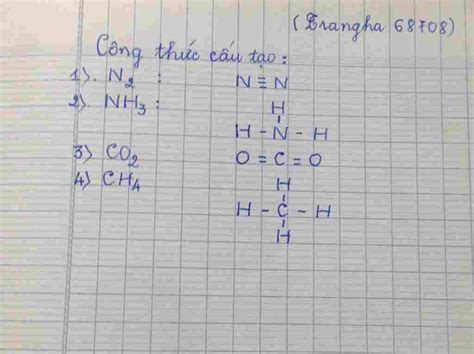 (Trangha 68708)
Công thức cấu tạo:
1). N₂ : N ≡ N
2). NH₃ : H
H - N - H
3) CO₂ O = C = O
4) CH₄ H
H - C - H
H